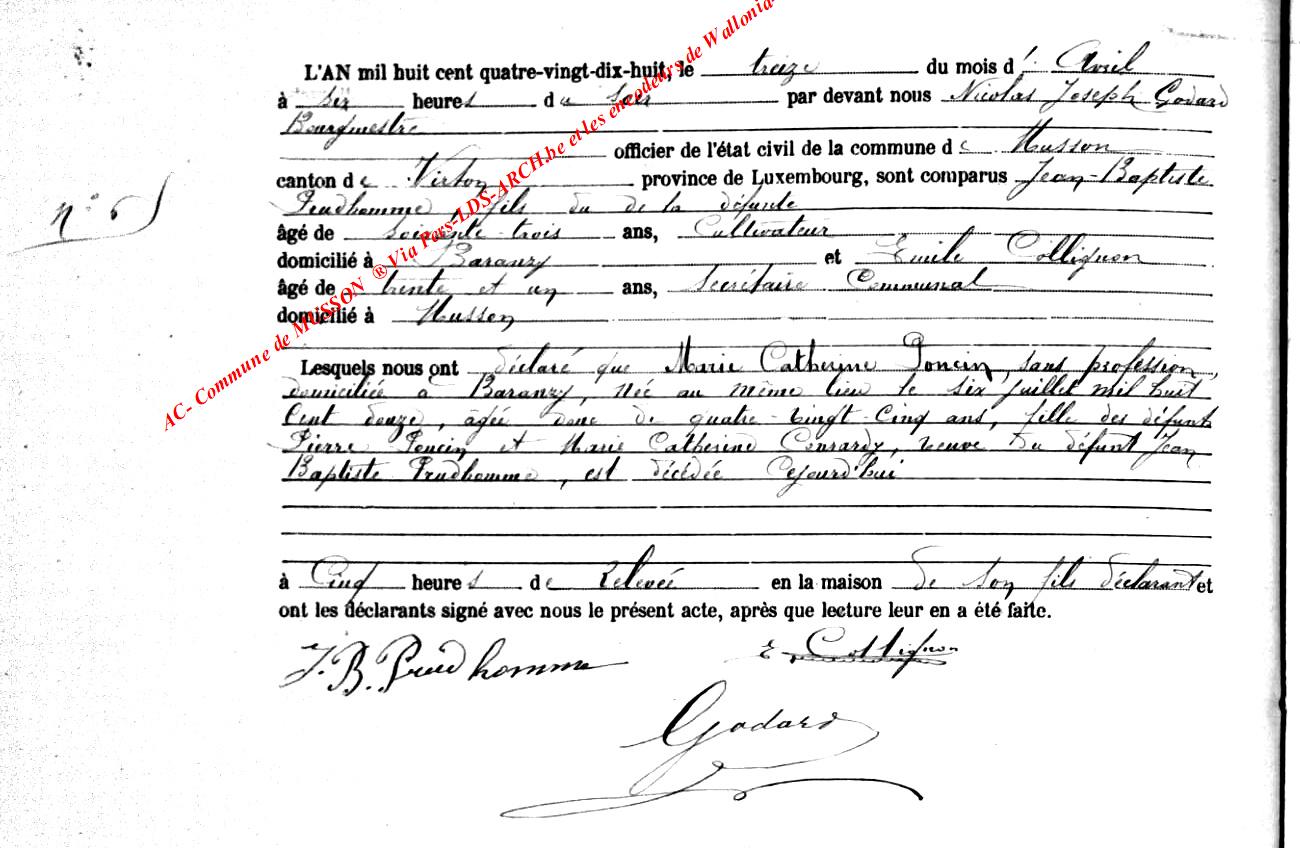 AC- Commune de MUSSON ® Via Pars-LDS-ARCH.be et les encodeurs de Wallonia-
L'AN mil huit cent quatre-vingt-dix-huit, le treize du mois d' Avril
à six heures du soir par devant nous Nicolas Joseph Godard
Bourgmestre
officier de l'état civil de la commune de Musson
canton de Virton province de Luxembourg, sont comparus Jean-Baptiste
Prudhomme, fils du de la défunte
âgé de soixante-trois ans, Cultivateur
domicilié à Baranzy et Emile Collignon
âgé de trente et un ans, Secrétaire Communal
domicilié à Musson
N° 6
Lesquels nous ont déclaré que Marie Catherine Poncin, sans profession,
domiciliée à Baranzy, née au même lieu le six juillet mil huit
cent douze, âgée donc de quatre-vingt-cinq ans, fille des défunts
Pierre Poncin et Marie Catherine Conrardy, veuve du défunt Jean
Baptiste Prudhomme, est décédée cejourd'hui
à Cinq heures de relevée en la maison de son fils déclarant et
ont les déclarants signé avec nous le présent acte, après que lecture leur en a été faite.
J. B. Prudhomme E Collignon
Godard